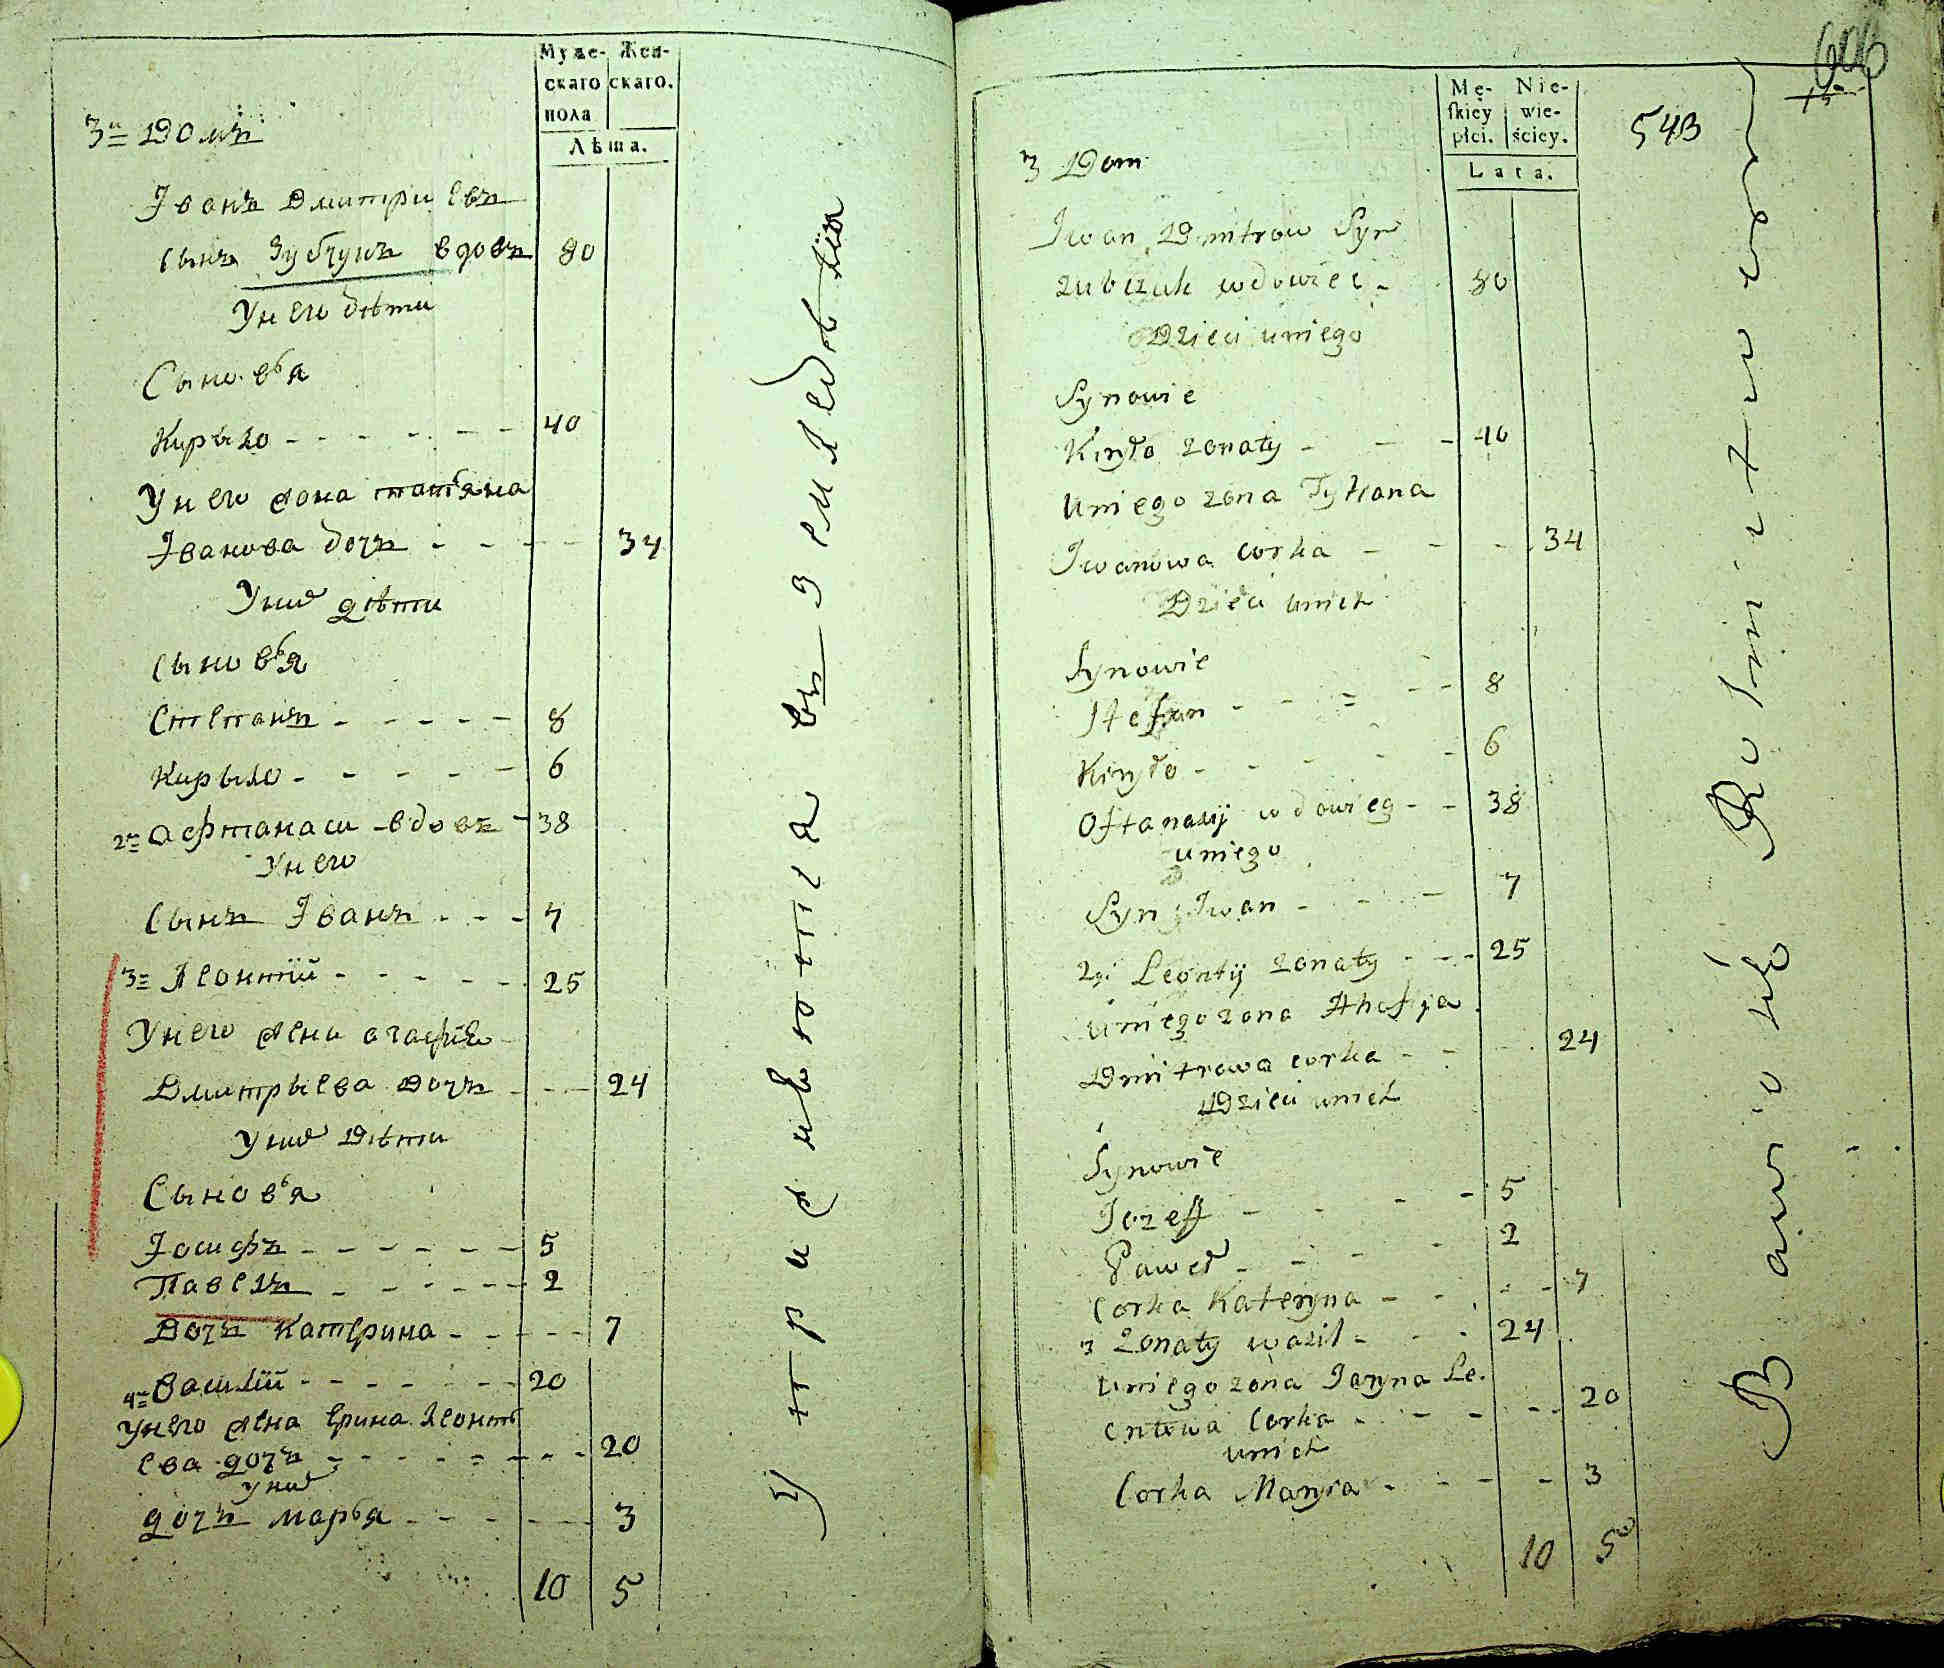 Муже-
скаго
пола
Жен-
скаго.
Лѣта.
3й домъ
Іванъ Дмитриевъ
сынъ Зубчукъ вдовъ 80
У него дѣти
Сыновья
Кирыло - - - - - - 40
У него жона татьяна
Іванова дочъ - - - - 34
У них дѣти
сыновья
Степанъ - - - - - 8
Кирыло - - - - - 6
2й афтанаси вдовъ - 38
У него
сынъ Іванъ - - - 7
3й Леонтій - - - - - 25
У него жена агафія
Дмитрыева дочъ - - - 24
У них Дѣти
Сыновья
Іосифъ - - - - - - 5
Павелъ - - - - - - 2
Дочъ Катерина - - - - - 7
4й Василій - - - - - - - 20
У него жена Ерина Леонть
ева дочъ - - - - - - - - 20
У них
дочъ марья - - - - - - 3
10 5
упражняются въ земледѣліи
Mę-
skiey
płci.
Nie-
wie-
ściey.
Lata.
606
543
3 Dom
Iwan Dmitrow Syn
Zubczuk wdowiec - 80
Dzieci uniego
Synowie
Kiryło zonaty - - - 40
Uniego zona Tytiana
Iwanowa corka - - - 34
Dzieci unich
Synowie
Stefan - - = - - 8
Kiryło - - - - - 6
Oftanasij wdowieg - - 38
uniego
Syn Iwan - - - 7
2gi Leontij zonaty - - - 25
Uniego zona Ahafija
Dmitrowa corka - - - 24
Dzieci unich
Synowie
Jozeff - - - - 5
Paweł - - - - 2
Corka Kateryna - - - - - 7
3 Zonaty wasil - - - - 24
Uniego zona Jaryna Le.
ontewa Corka - - - - - 20
unich
Corka Maryia - - - - - 3
10 5
Bawio się Rolnictwem